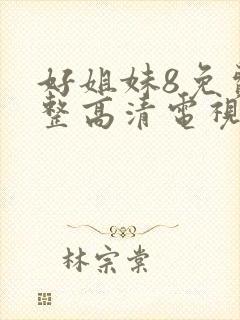 好姐妹8免費
整高清電視
林宗棠